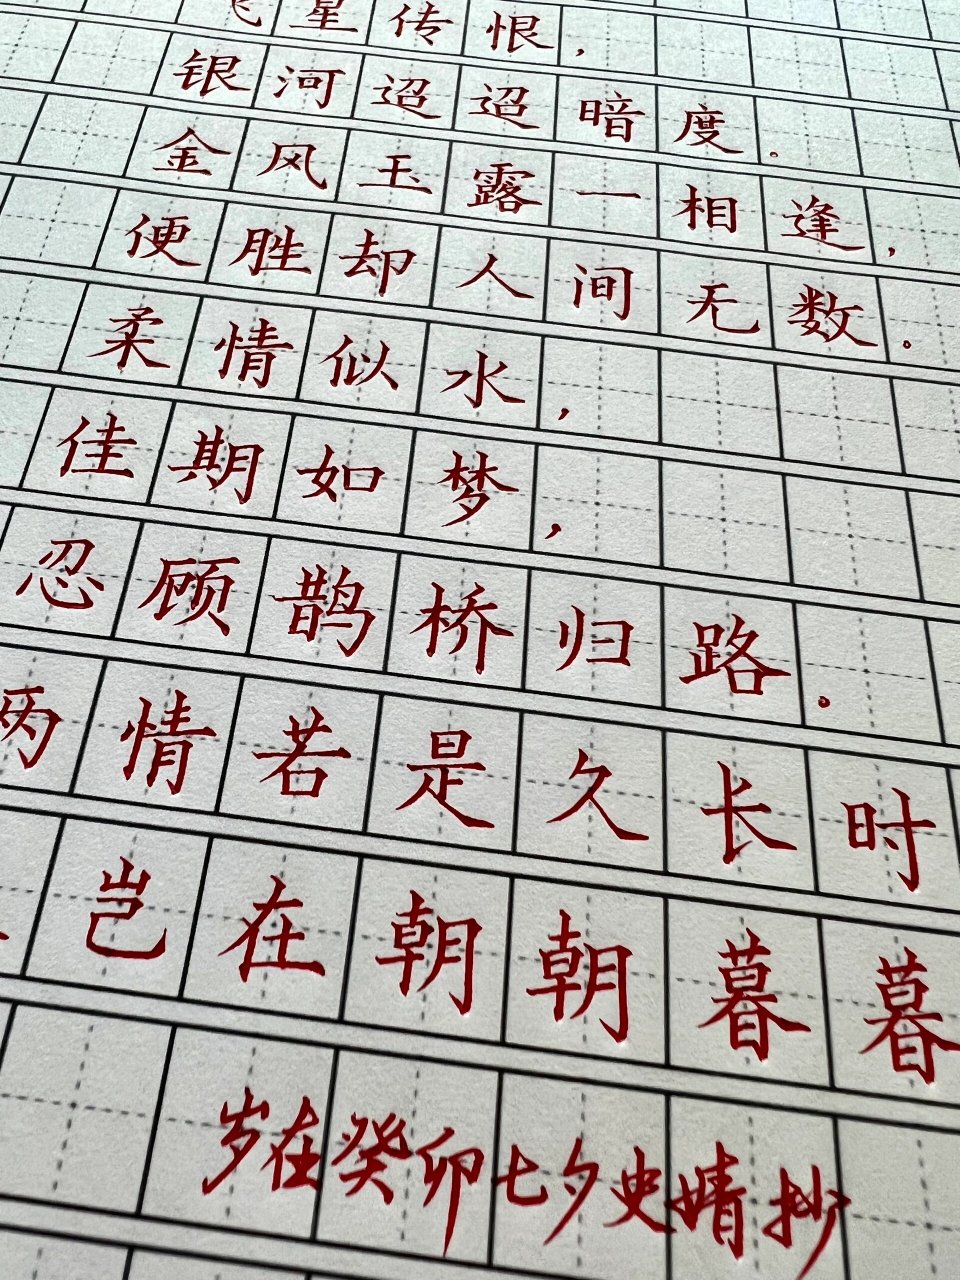 飞星传恨，
银河迢迢暗度。
金风玉露一相逢，
便胜却人间无数。
柔情似水，
佳期如梦，
忍顾鹊桥归路。
两情若是久长时
岂在朝朝暮暮
岁在癸卯七夕史婧抄